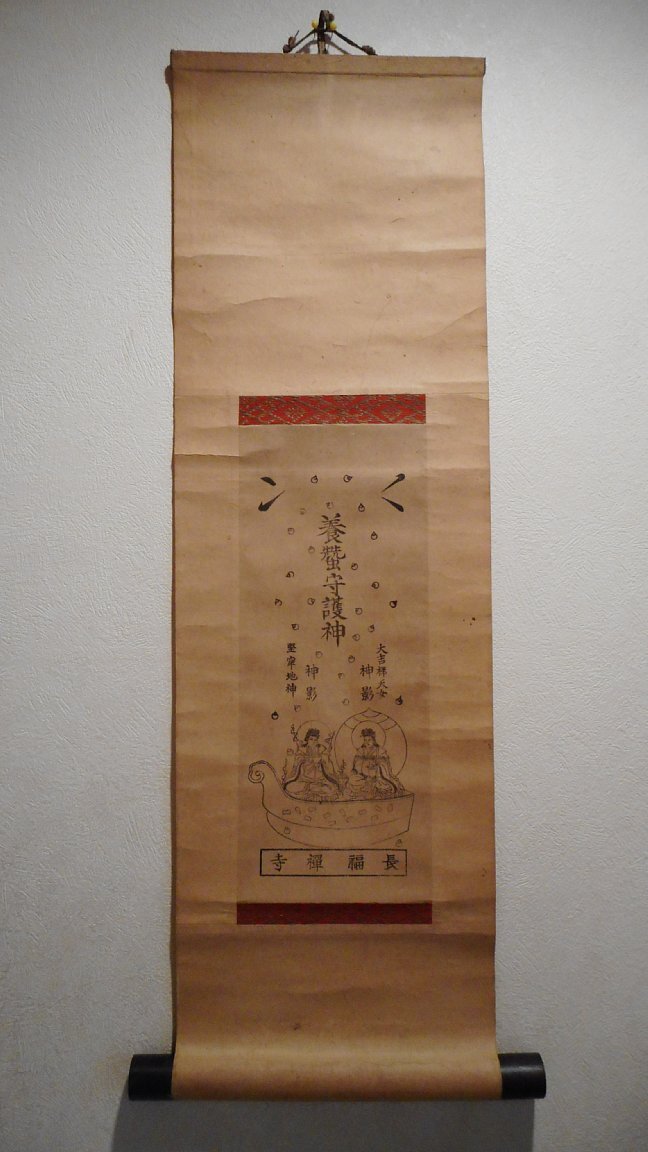 養蠶守護神
大吉祥天女
神影
堅窂地神
神影
長福禪寺